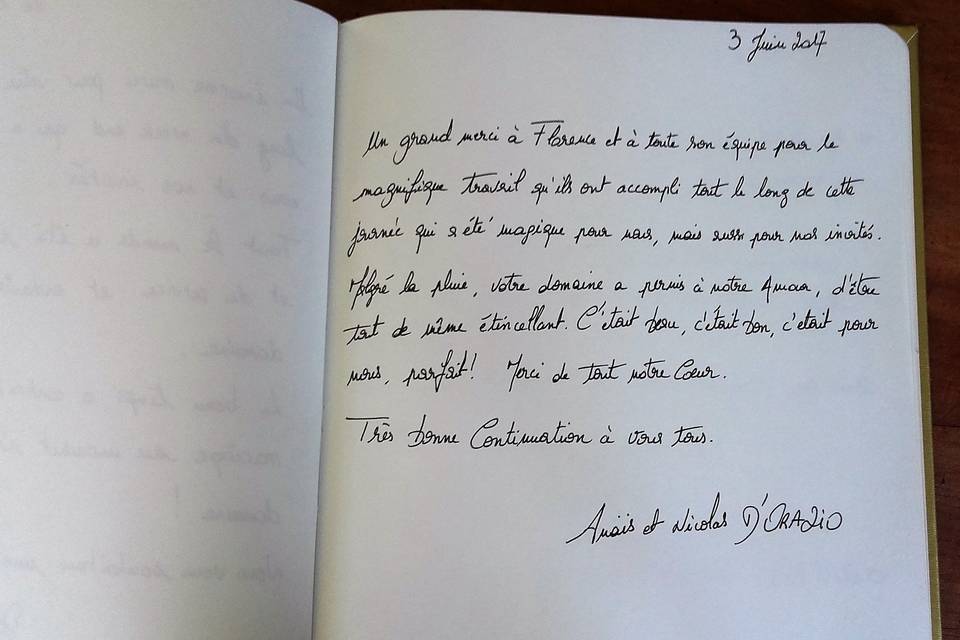 3 Juin 2017
Un grand merci à Florence et à toute son équipe pour le
magnifique travail qu'ils ont accompli tout le long de cette
journée qui a été magique pour nous, mais aussi pour nos invités.
Malgré la pluie, votre domaine a permis à notre Amour, d'être
tout de même étincellant. C'était beau, c'était bon, c'était pour
nous, parfait! Merci de tout notre Coeur.
Très bonne Continuation à vous tous.
Anaïs et Nicolas D'ORAZIO